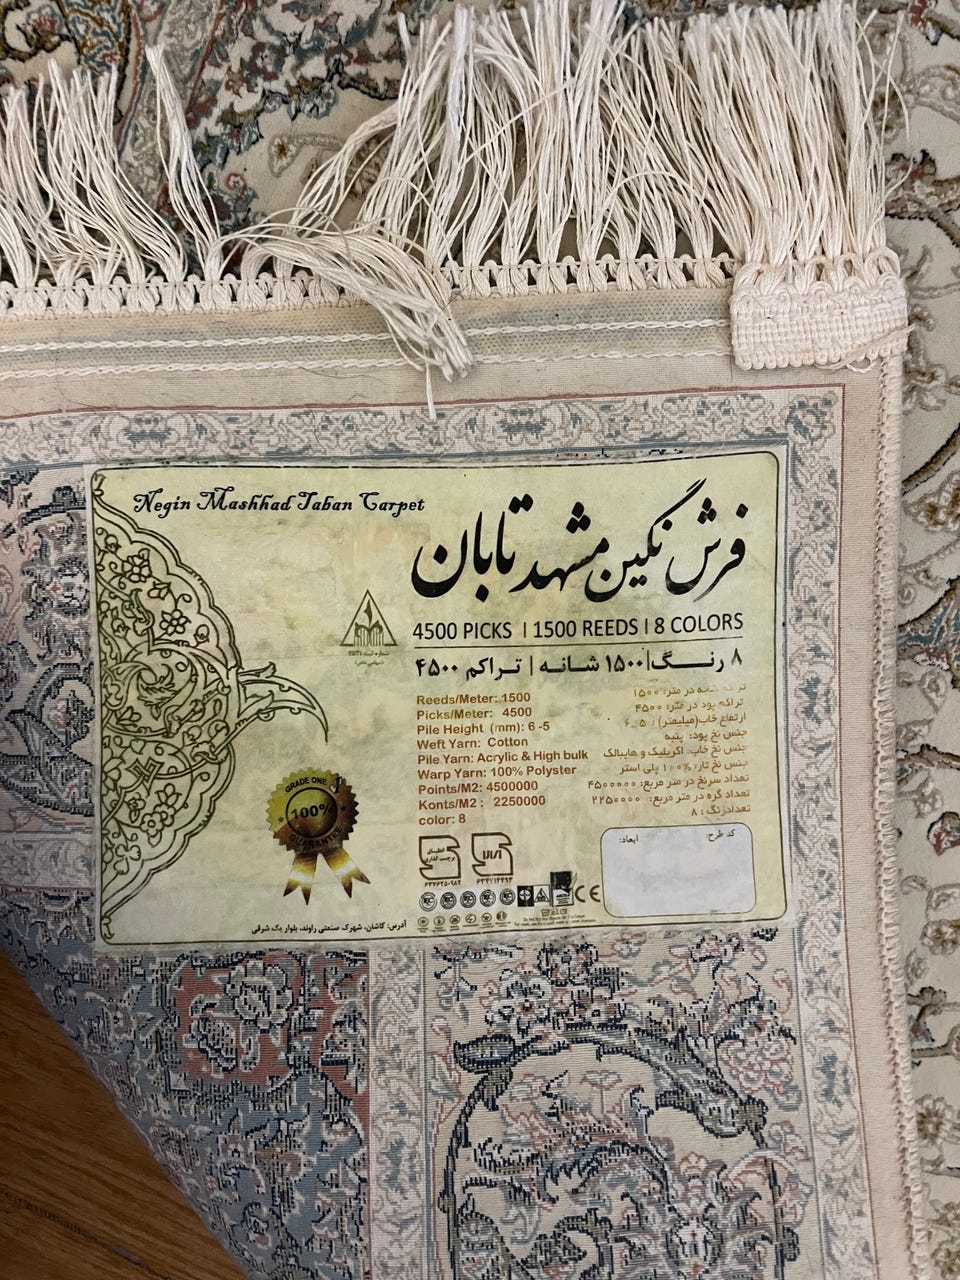 Negin Mashhad Taban Carpet
فرش نگین مشهد تابان
4500 PICKS | 1500 REEDS | 8 COLORS
۸ رنگ | ۱۵۰۰ شانه | تراکم ۴۵۰۰
Reeds/Meter: 1500
Picks/Meter: 4500
Pile Height (mm): 6 -5
Weft Yarn: Cotton
Pile Yarn: Acrylic & High bulk
Warp Yarn: 100% Polyster
Points/M2: 4500000
Konts/M2 : 2250000
color: 8
تراکم شانه در متر: ۱۵۰۰
تراکم پود در متر: ۴۵۰۰
ارتفاع خاب(میلیمتر) : ۵_۶
جنس نخ پود: پنبه
جنس نخ خاب: اکریلیک و هایبالک
جنس نخ تار: ۱۰۰% پلی استر
تعداد سرنخ در متر مربع: ۴۵۰۰۰۰۰
تعداد گره در متر مربع: ۲۲۵۰۰۰۰
تعداد رنگ : ۸
GRADE ONE
100%
GUARANTEE
کد طرح:
ابعاد:
CE
آدرس: کاشان، شهرک صنعتی راوند، بلوار یک شرقی